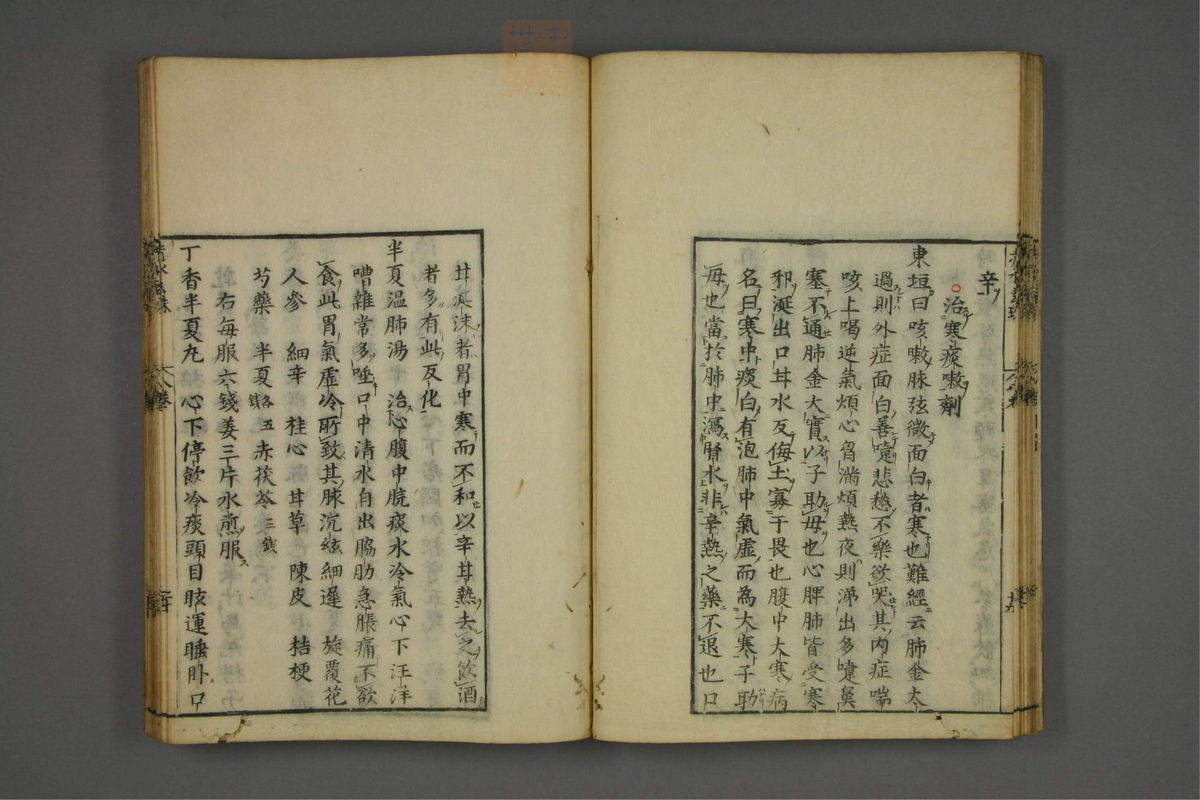 辛
治寒痰嗽劑
東垣曰咳嗽脉弦微面白者寒也難經云肺金太
過則外症面白善嚏悲愁不樂欲哭其内症喘
咳上喝逆氣煩心胷滿煩熱夜則涕出多嚏鼻
塞不通肺金大實以子助毋也心脾肺皆受寒
邪涎出口甘水反侮土寡于畏也腹中大寒病
名曰寒中痰白有泡肺中氣虛而為大寒子助
毋也當於肺中瀉腎水非辛熱之藥不退也口
甘涎沫者胃中寒而不和以辛甘熱去之飲酒
者多有此反化
半夏温肺湯 治心腹中脘痰水冷氣心下汪洋
嘈雜常多唾口中清水自出脇肋急脹痛不欲
食此胃氣虛冷所致其脉沉絃細遲 旋覆花
人參 細辛 桂心 甘草 陳皮 桔梗
芍藥 半夏各五錢 赤茯苓三錢
右每服六錢姜三片水煎服
丁香半夏丸 心下停飲冷痰頭目眩運睡卧口